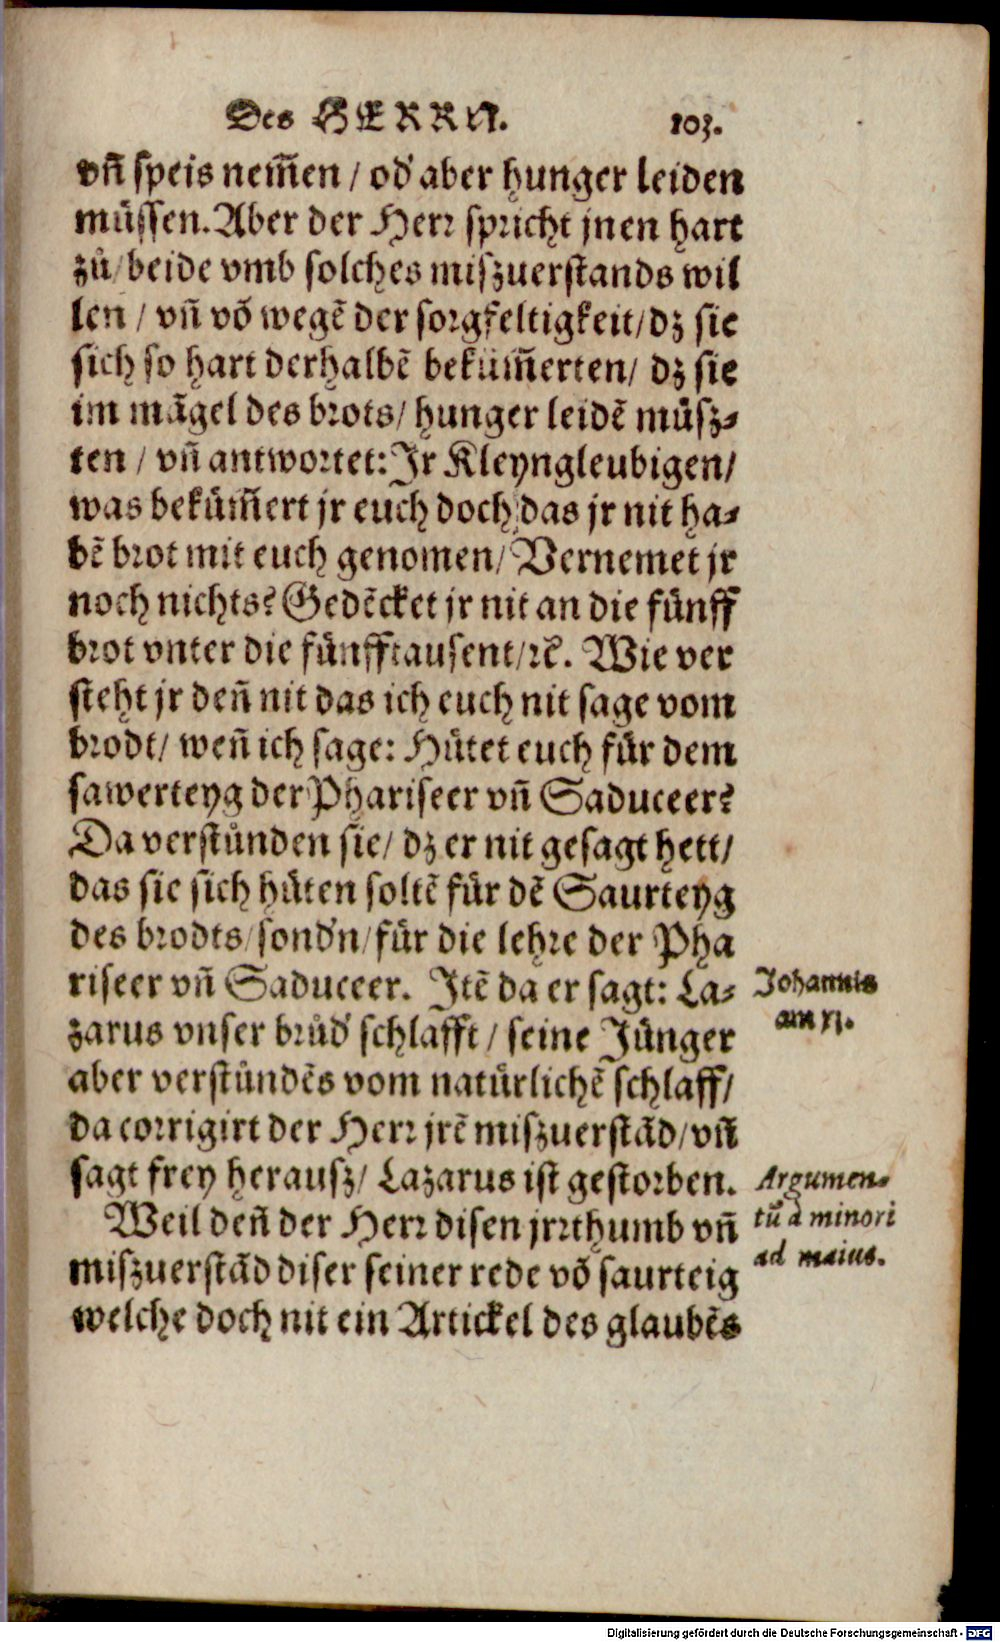 Des HERRN.
103.
vñ speis nem̃en / od' aber hunger leiden
müssen. Aber der Herr spricht jnen hart
zů / beide vmb solches miszuerstands wil
len / vñ võ wegẽ der sorgfeltigkeit / dz sie
sich so hart derhalbẽ beküm̃erten / dz sie
im mãgel des brots / hunger leidẽ müsz⸗
ten / vñ antwortet: Jr Kleyngleubigen /
was beküm̃ert jr euch doch / das jr nit ha⸗
bẽ brot mit euch genomen / Vernemet jr
noch nichts? Gedẽcket jr nit an die fünff
brot vnter die fünfftausent / ꝛc̃. Wie ver
steht jr deñ nit das ich euch nit sage vom
brodt / weñ ich sage: Hütet euch für dem
sawerteyg der Phariseer vñ Saduceer?
Da verstůnden sie / dz er nit gesagt hett /
das sie sich hüten soltẽ für dẽ Saurteyg
des brodts / sond'n / für die lehre der Pha
riseer vñ Saduceer. Jtẽ da er sagt: La⸗
zarus vnser brůd' schlafft / seine Jünger
aber verstůndẽs vom natürlichẽ schlaff /
da corrigirt der Herr jrẽ miszuerstãd / vñ
sagt frey herausz / Lazarus ist gestorben.
Weil deñ der Herr disen jrrthumb vñ
miszuerstãd diser seiner rede võ saurteig
welche doch nit ein Artickel des glaubẽs
Johannis
am xj.
Argumen⸗
tũ à minori
ad maius.
Digitalisierung gefördert durch die Deutsche Forschungsgemeinschaft - DFG